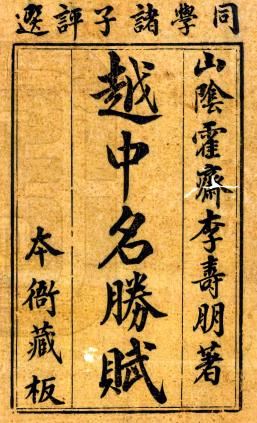 同學諸子評選
山陰霍齋李壽朋著
越中名勝賦
本衙藏板